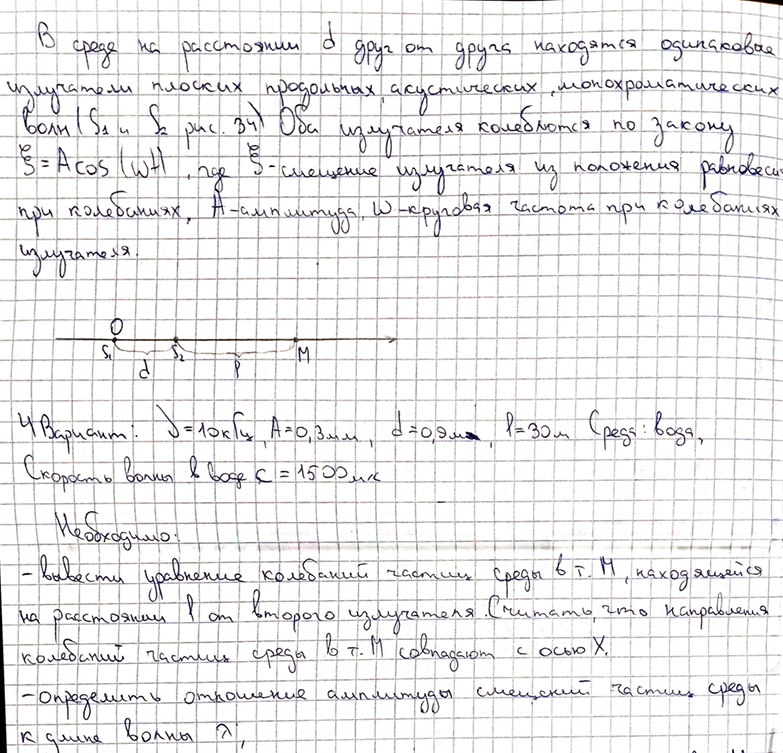 В среде на расстоянии d друг от друга находятся одинаковые
излучатели плоских продольных, акустических, монохроматических
волн (S1 и S2 рис. 34) Оба излучателя колеблются по закону
ξ = A cos (wt), где ξ - смещение излучателя из положения равновесия
при колебаниях, А-амплитуда, w-круговая частота при колебаниях
излучателя.
O
S1 S2 M
d l
4 Вариант: ν=10кГц, A=0,3мм, d=0,9м, l=30м Среда: вода,
Скорость волны в воде c = 1500м/с
Необходимо:
- вывести уравнение колебаний частиц среды в т. М, находящейся
на расстоянии l от второго излучателя. Считать, что направления
колебаний частиц среды в т. М совпадают с осью X.
- определить отношение амплитуды смещений частиц среды
к длине волны λ;